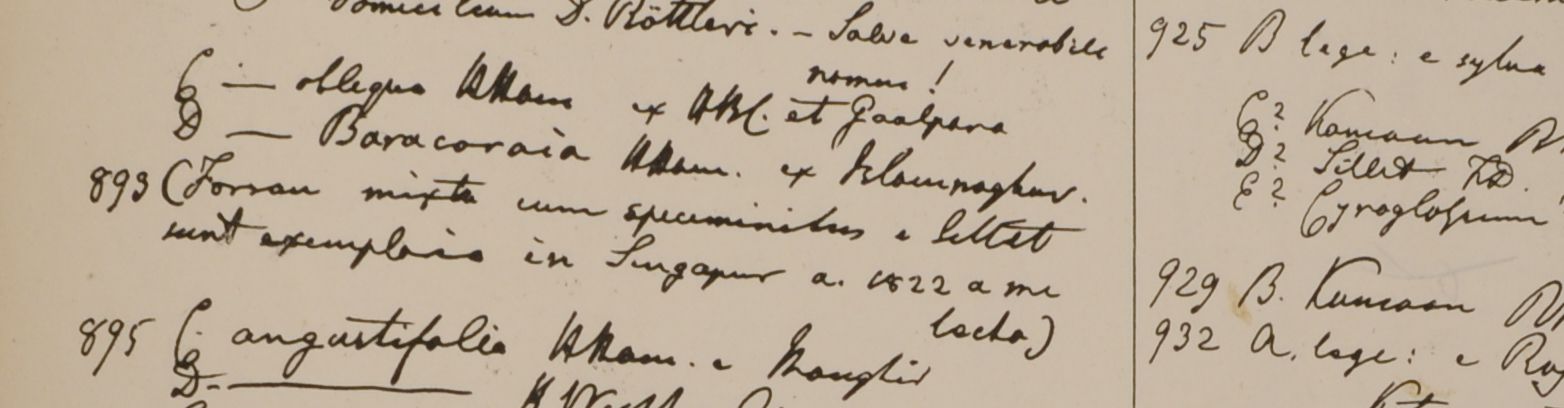 domicilium D. Röttleri. - Salve venerabile
nomen!
C — obliqua HHam ex HBC. et Goalpara
D — Baracoraia HHam. ex
893 (Forsan mixta cum speciminibus e Sillet
sunt exemplaria in Singapur a. 1822 a me
lecta)
895 C. angustifolia HHam. e
D. —
925 B lege: e sylva
C? Kamaon
D? Sillet FD.
E? Cynoglossum
929 B. Kamaon
932 A. lege: e